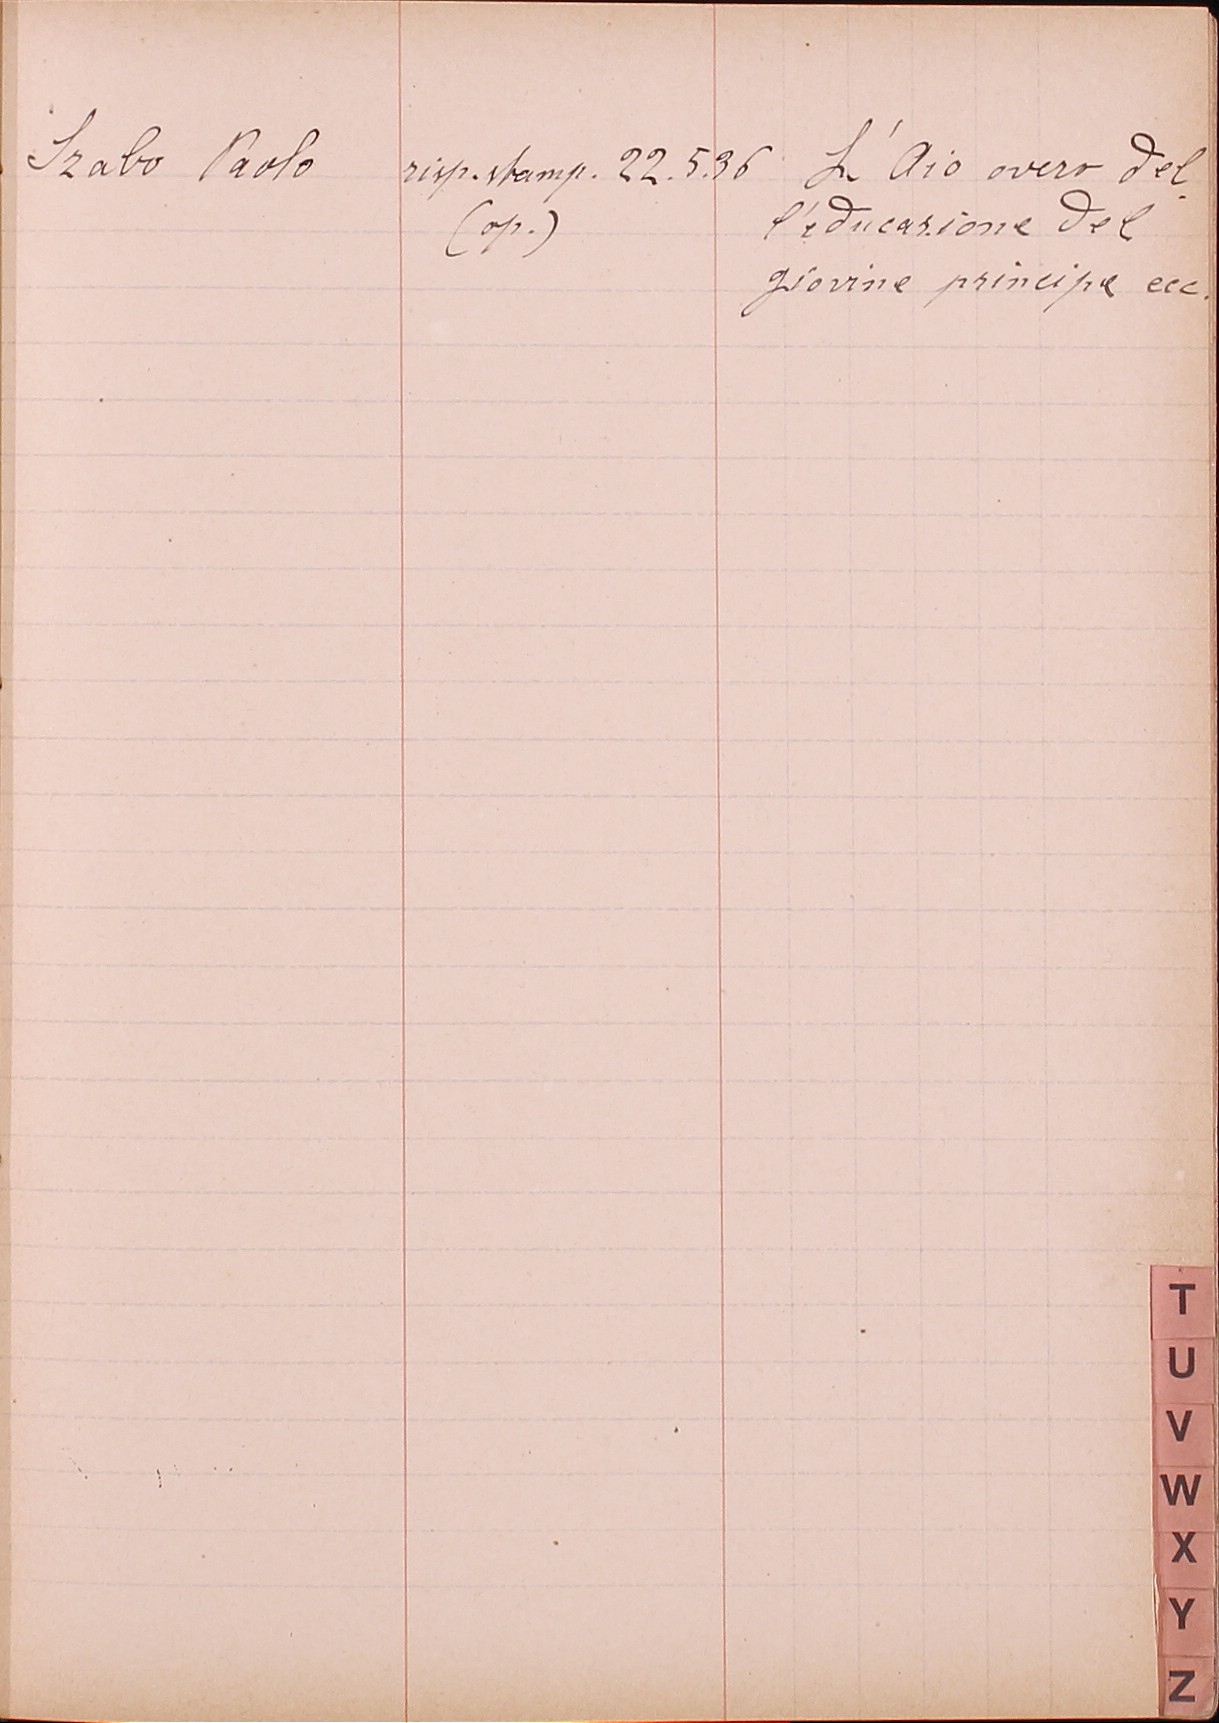 Szabo Paolo risp. stamp. 22.5.36 L'Aio overo del
(op.) l'educazione del
giovine principe ecc.
T
U
V
W
X
Y
Z